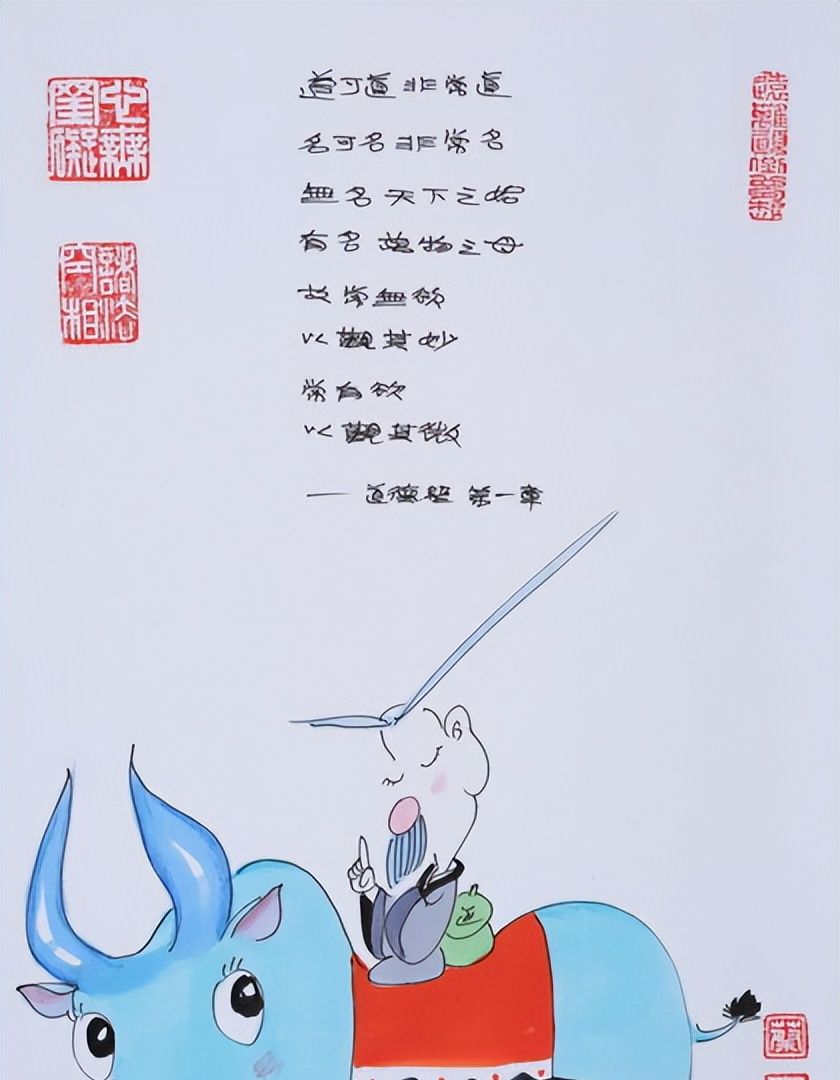 道可道非常道
名可名非常名
無名天下之始
有名萬物之母
故常無欲
以觀其妙
常有欲
以觀其微
—— 道德經 第一章
心無罣礙
諸法空相
道
蔡